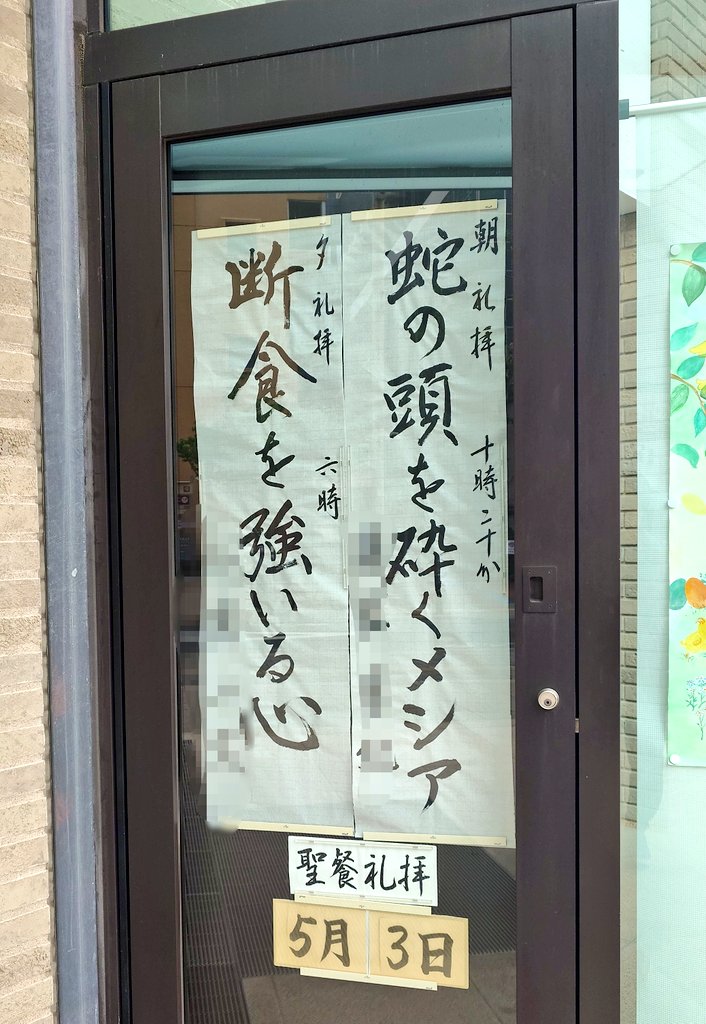 朝礼拝 十時二十分
蛇の頭を砕くメシア
夕礼拝 六時
断食を強いる心
聖餐礼拝
5月3日